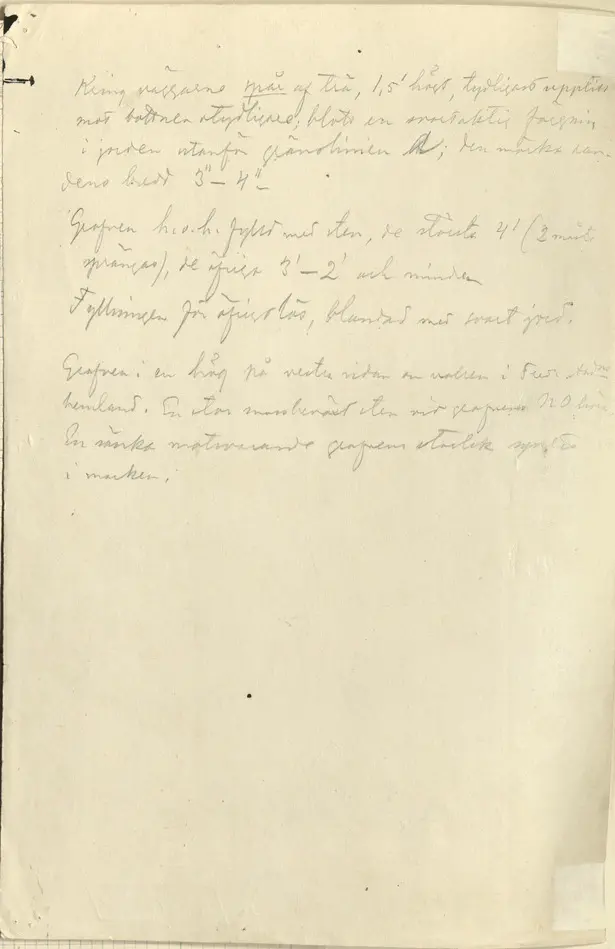 Kring väggarne spår af trä, 1,5' högt, tydligast upptill
mot bottnen otydligare; blott en svartaktig färgning
i jorden utanför gränslinien a; den mörka ran-
dens bredd 3"-4"
Grafven h.o.h. fylld med sten, de största 4' (2 måste
sprängas), de öfriga 3'-2' och mindre
Fyllningen för öfrigt lös, blandad med svart jord.
Grafven i en hög på vestra sidan om
hemland. En stor mossbelupen sten vid grafvens NO
En sänka motsvarande grafvens storlek syntes
i marken.